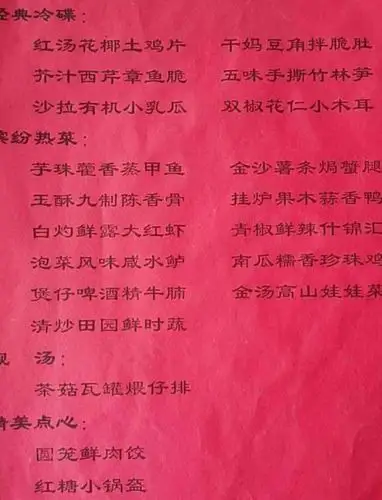 经典冷碟：
红汤花椰土鸡片 干妈豆角拌脆肚
芥汁西芹章鱼脆 五味手撕竹林笋
沙拉有机小乳瓜 双椒花仁小木耳
缤纷热菜：
芋珠藿香蒸甲鱼 金沙薯条焗蟹腿
玉酥九制陈香骨 挂炉果木蒜香鸭
白灼鲜露大红虾 青椒鲜辣什锦汇
泡菜风味咸水鲈 南瓜糯香珍珠鸡
煲仔啤酒精牛腩 金汤高山娃娃菜
清炒田园鲜时蔬
汤：
茶菇瓦罐煨仔排
精美点心：
圆笼鲜肉饺
红糖小锅盔